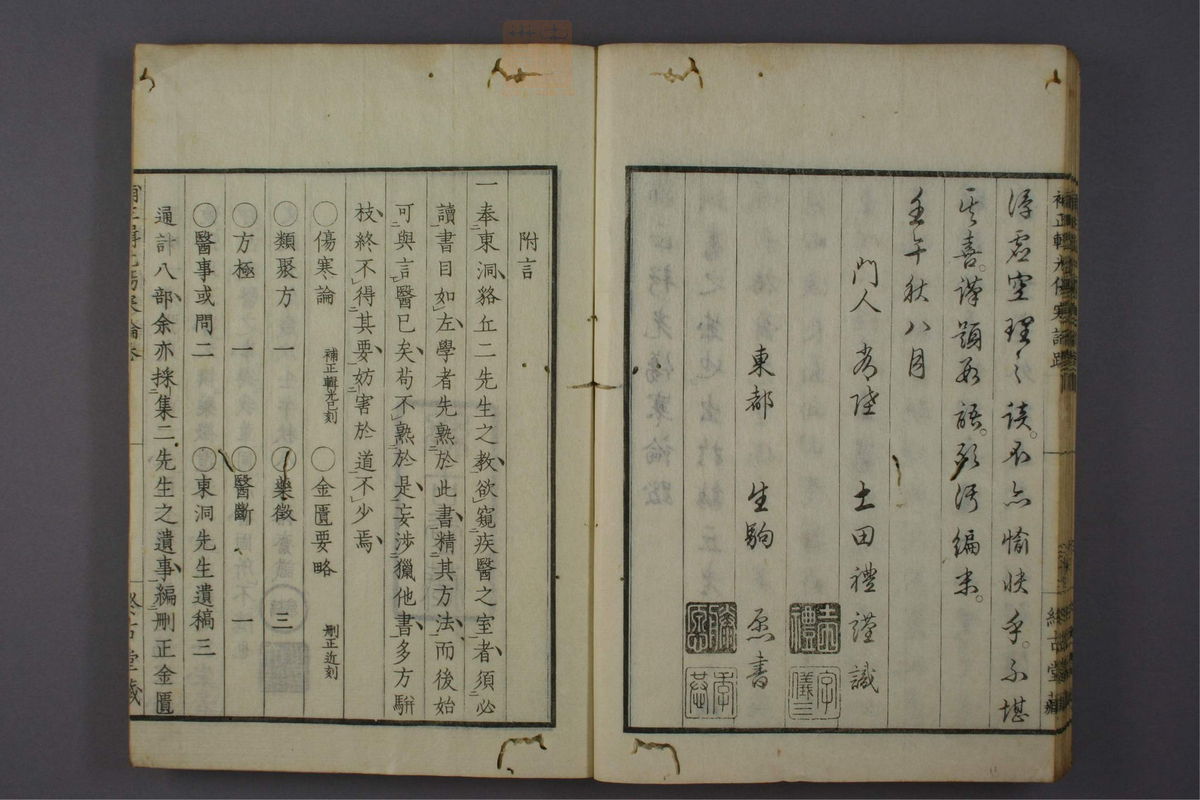 補正輯光傷寒論跋
浮虛空理之談。不亦愉快乎。不堪
其喜。謹題數語。
編末。
壬午秋八月
門人
土田禮謹識
東都 生駒
書
附言
一奉東洞貉丘二先生之教、欲窺疾醫之室者、須必
讀書目如左、學者先熟於此書、精其方法、而後始
可與言醫已矣、苟不熟於是、妄涉獵他書、多方駢
枝終不得其要、妨害於道不少焉、
〇傷寒論 補正輯光已刻 〇金匱要略 刪正近刻
〇類聚方一 〇藥徵 三
〇方極 一 〇醫斷 一
〇醫事或問二 〇東洞先生遺稿三
通計八部余亦採集二先生之遺事、編刪正金匱